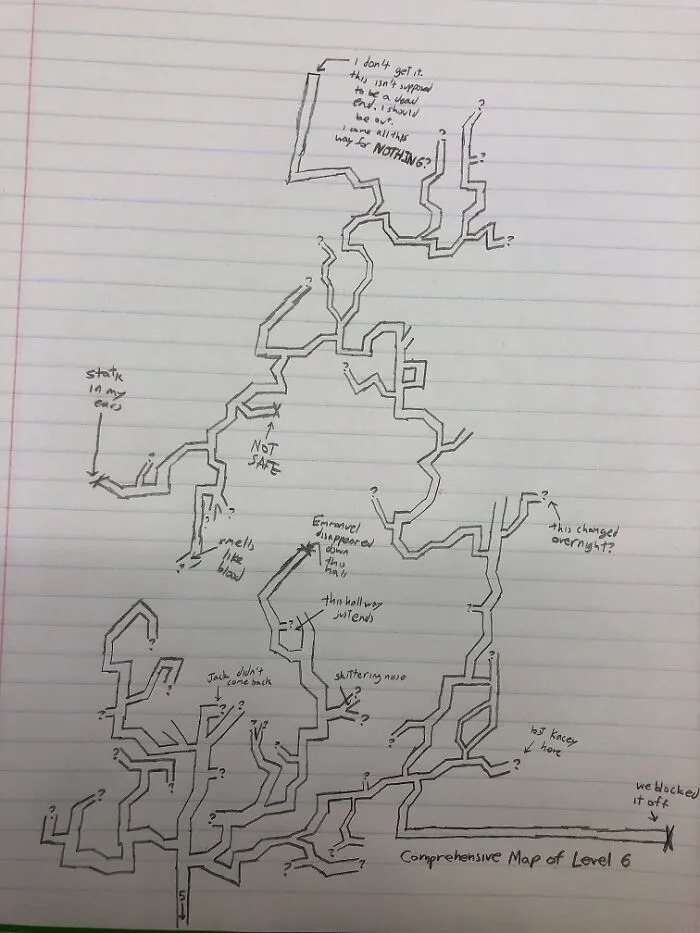 I don't get it.
this isn't supposed
to be a dead
end. I should
be out.
I came all this
way for NOTHING?
?
?
?
?
?
?
?
static
in my
ears
NOT
SAFE
?
?
?
?
?
smells
like
blood
?
?
this changed
overnight?
Emmanuel
disappeared
down
this
hall
this hallway
just ends
?
?
?
?
?
Jack didn't
come back
skittering noise
?
?
?
?
?
?
?
?
?
?
lost Kacey
here
?
?
?
?
?
?
?
?
we blocked
it off
?
?
?
?
Comprehensive Map of Level 6
5